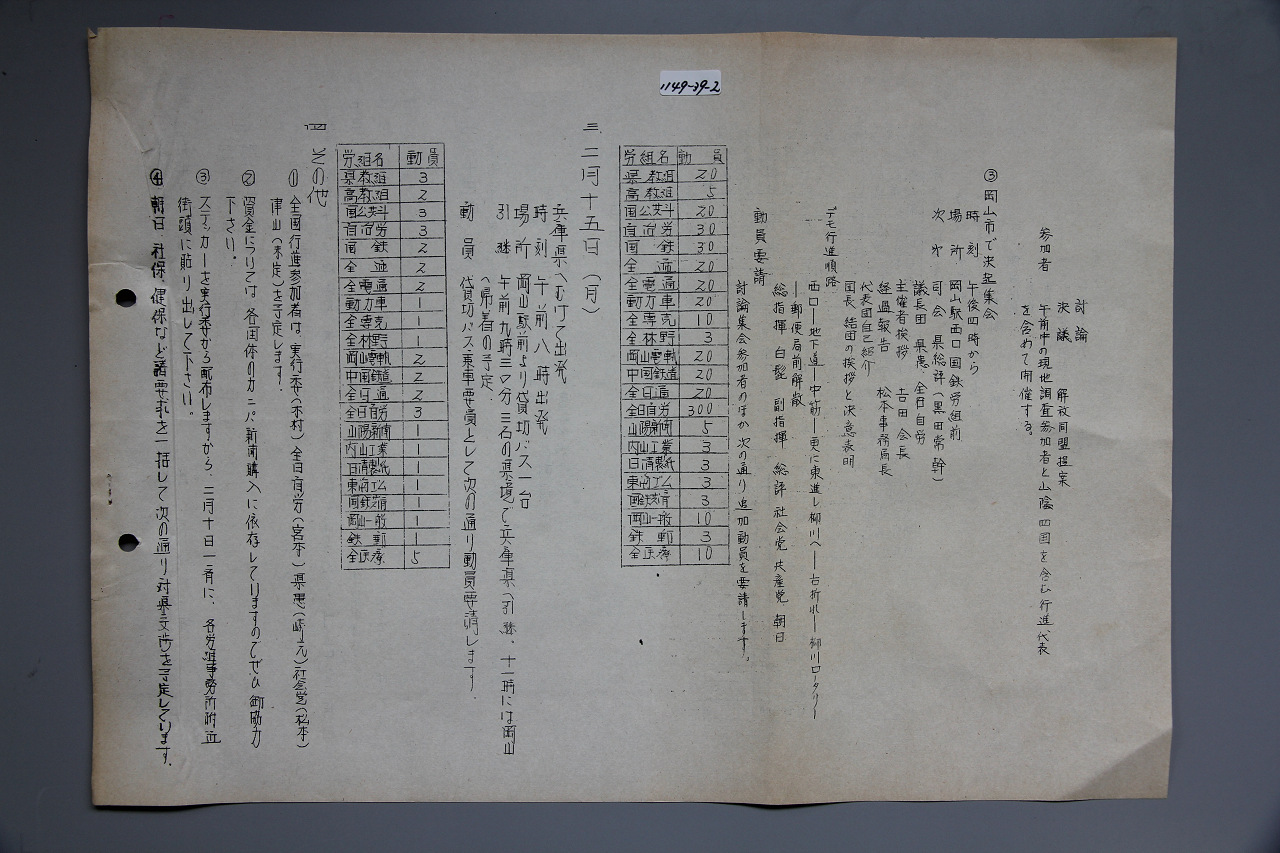 1149-39-2
討論
決議　解放同盟提案
参加者　午前中の現地調査参加者と山陰四国を含む行進代表
を含めて開催する。
③ 岡山市で決起集会
時刻　午後四時から
場所　岡山駅西口国鉄労組前
次才　司会　県総評（黒田常幹）
議長団　県患、全日自労
主催者挨拶　吉田会長
経過報告　松本事務局長
代表団自己紹介
団長　結団の挨拶と決意表明
デモ行進順路
西口―地下道―中筋―更に東進し柳川へ―右折れ―柳川ロータリー
―郵便局前解散
総指揮　白髭　副指揮　総評　社会党　共産党　朝日
動員要請
討論集会参加者のほか次の通り追加動員を要請します。
労組名　動員
県教組　20
高教組　5
国公共斗　20
自治労　30
国鉄　30
全逓　20
全電通　20
動力車　20
全専売　10
全林野　3
岡山電軌　20
中国鉄道　20
全日通　20
全日自労　300
山陽新聞　5
内山工業　3
日清製紙　3
東南ゴム　3
国鉄共済　3
岡山一般　10
鉄動　3
全医療　10
三　二月十五日（月）
兵庫県へむけて出発
時刻　午前八時出発
場所　岡山駅前より貸切バス一台
引継　午前九時三〇分三石の県境で兵庫県へ引継、十一時には岡山
へ帰着の予定、
動員　貸切バス乗車要員として次の通り動員要請します。
労組名　動員
県教組　3
高教組　2
国公共斗　3
自治労　3
国鉄　2
全逓　2
全電通　2
動力車　1
全専売　1
全林野　1
岡山電軌　2
中国鉄道　2
全日通　2
全日自労　3
山陽新聞　1
内山工業　1
日清製紙　1
東南ゴム　1
国鉄共済　1
岡山一般　1
鉄動　1
全医療　5
四　その他
① 全国行進参加者は、実行委（木村）全日自労（宮本）県患（崎元）社会党（松本）
津山（未定）を予定します。
② 資金については、各団体のカンパ、新聞購入に依存していますのでぜひ御協力
下さい。
③ ステッカーを実行委から配布しますから、二月十日一斉に、各労組事務所附近
街頭に貼り出して下さい。
④ 朝日、社保、健保など諸要求を一括して次の通り対県交渉を予定しています。